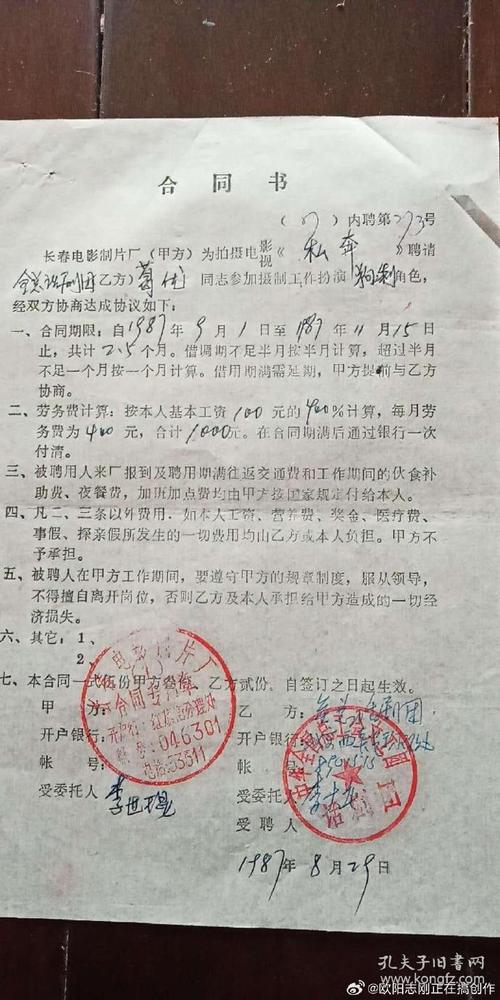 合同书
(87)内聘第273号
长春电影制片厂(甲方)为拍摄电影视《私奔》聘请
全总话剧团乙方)葛优同志参加摄制工作扮演 角色,
经双方协商达成协议如下:
一、合同期限:自1987年9月1日至1987年11月15日
止,共计2.5个月。借调期不足半月按半月计算,超过半月
不足一个月按一个月计算。借用期满需延期,甲方提前与乙方
协商。
二、劳务费计算:按本人基本工资100元的400%计算,每月劳
务费为400元,合计1000元。在合同期满后通过银行一次
付清。
三、被聘用人来厂报到及聘用期满往返交通费和工作期间的伙食补
助费、夜餐费,加班加点费均由甲方按国家规定付给本人。
四、凡二、三条以外费用.如本人工资、营养费、奖金、医疗费、
事假、探亲假所发生的一切费用均由乙方或本人负担。甲方不
予承担。
五、被聘人在甲方工作期间,要遵守甲方的规章制度,服从领导,
不得擅自离开岗位,否则乙方及本人承担给甲方造成的一切经
济损失。
六、其它:1、
2、
七、本合同一式伍份甲方叁份,乙方贰份,自签订之日起生效。
甲方:
开户银行:
帐号:
受委托人 李世
乙方:全总话剧团
开户银行:
帐号:
受委托人
受聘人
电影制片厂
合同专用章
开户行:红旗街办理处
帐号:046301
电话:53311
话剧团
1987年8月29日
孔夫子旧书网
www.kongfz.com
@欧阳志刚正在搞创作